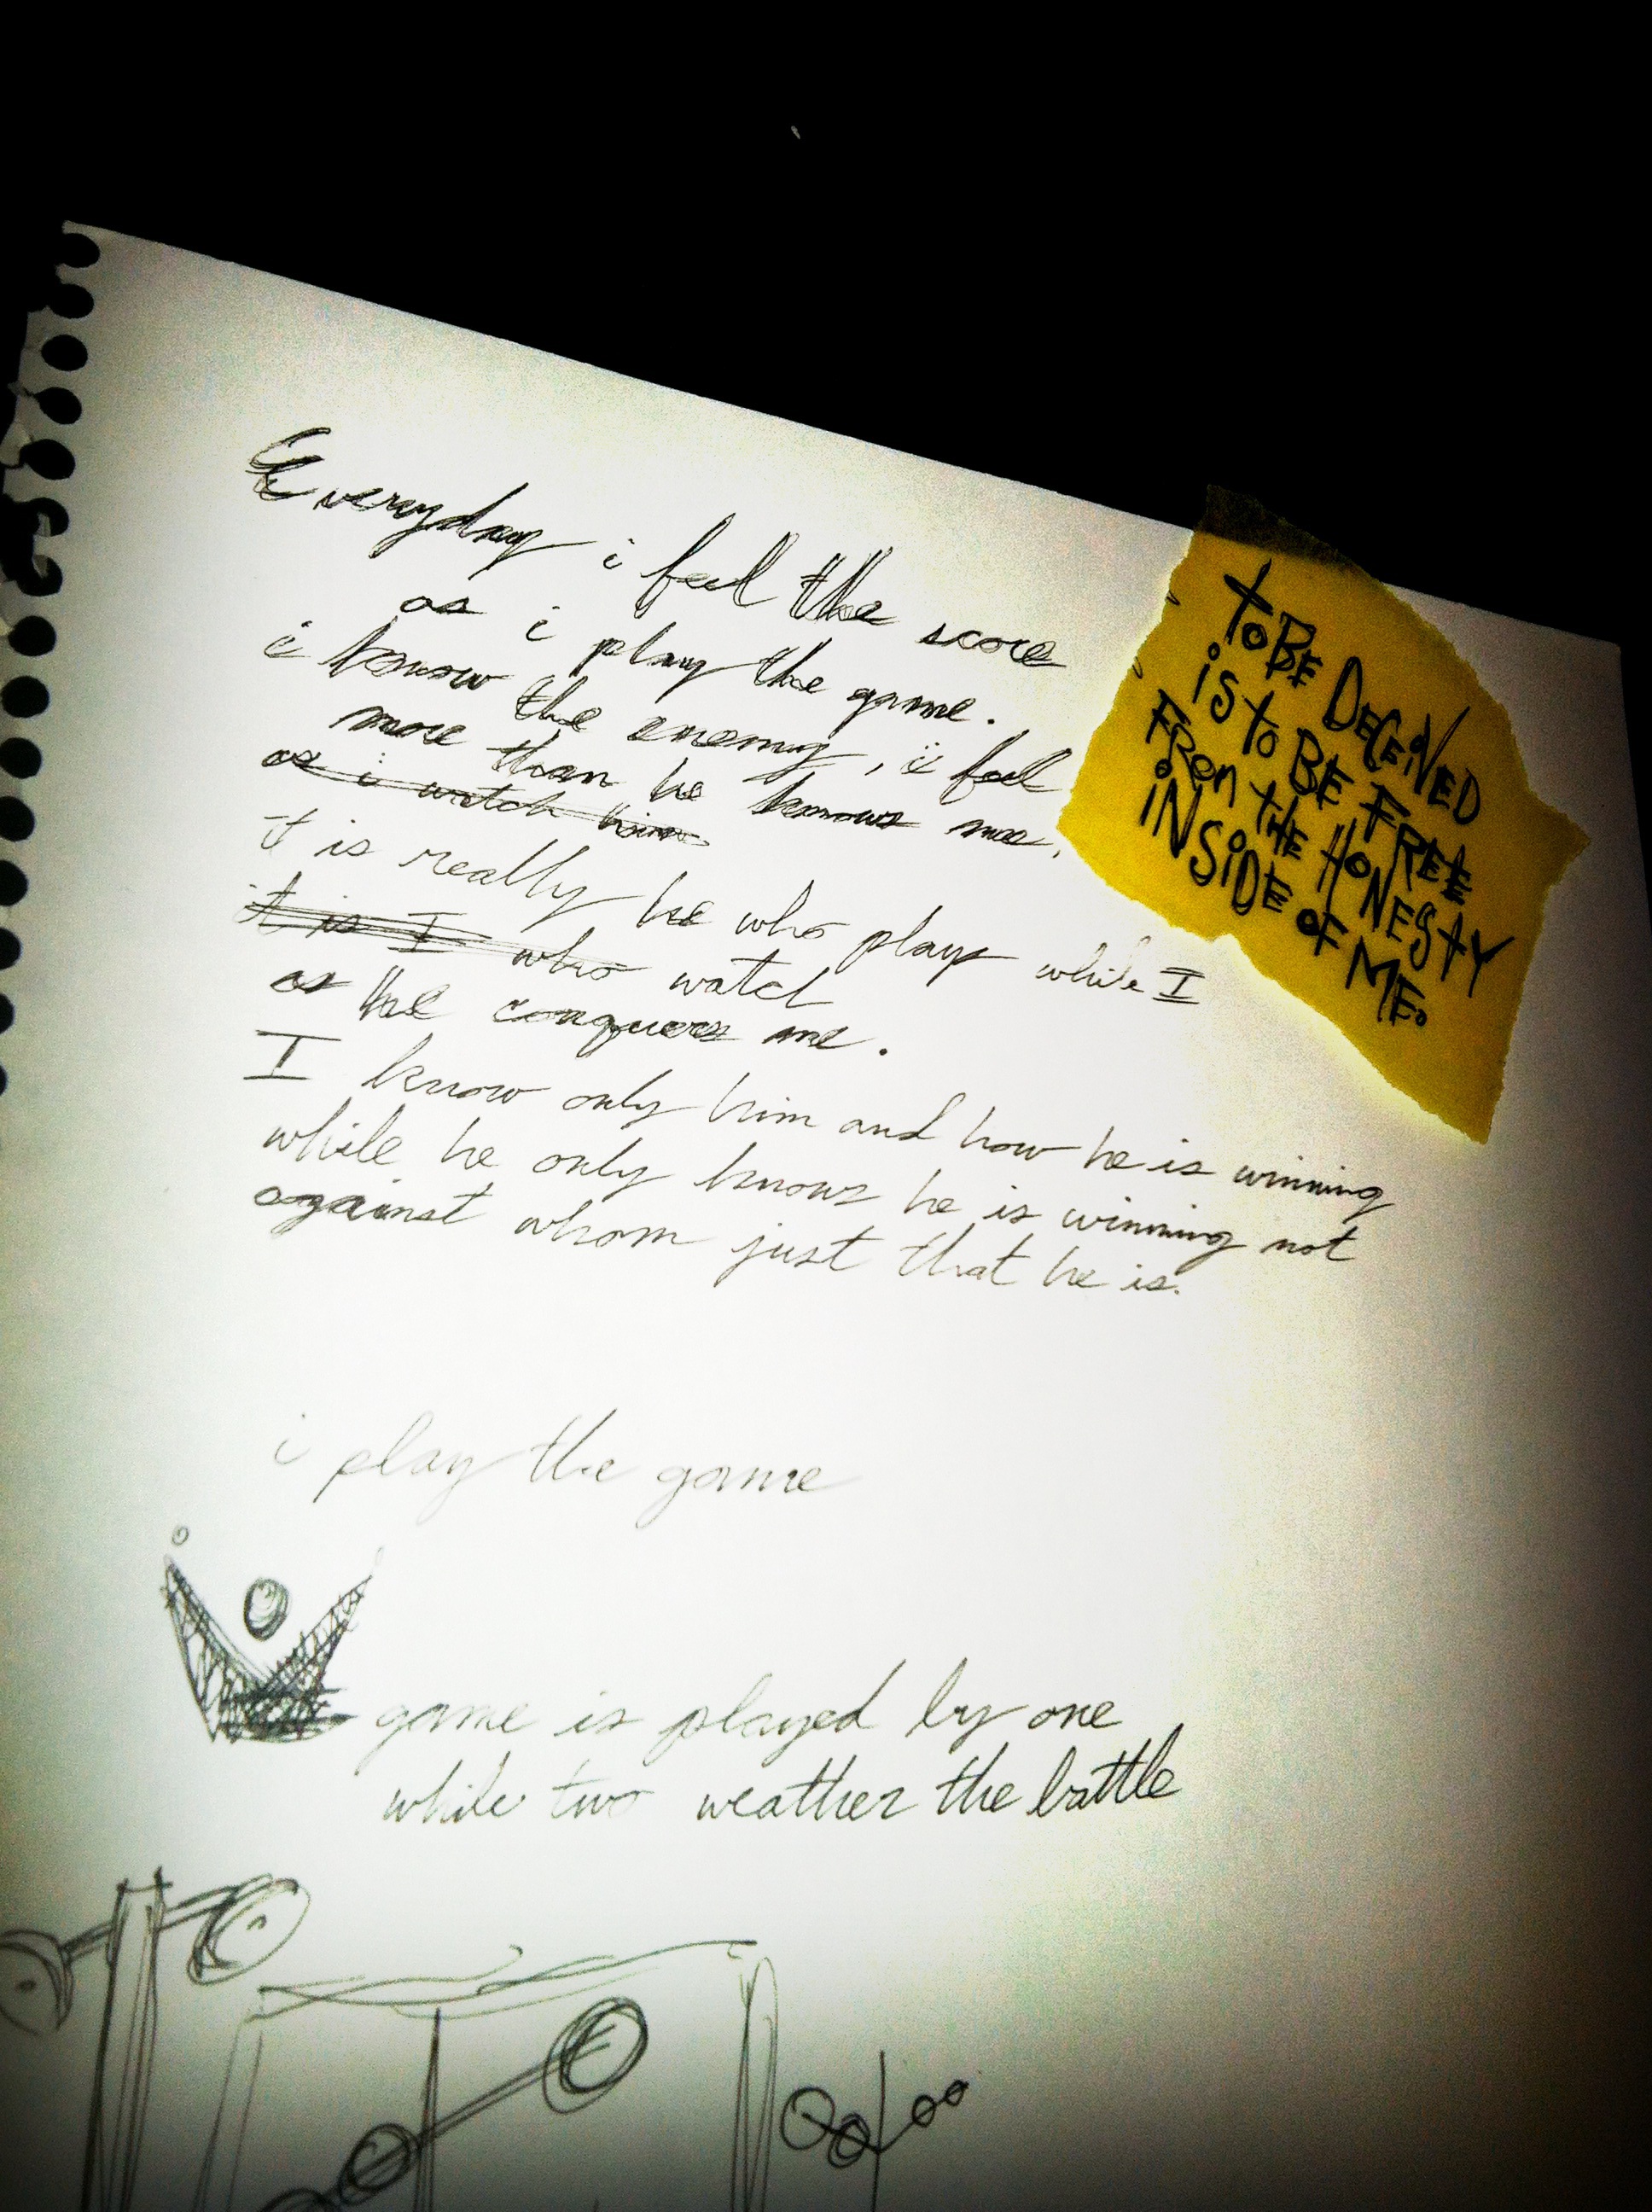 Everyday i feel the score
as i play the game.
i know the enemy, i feel
more than he knows me.
as i watch him
it is really he who plays while I
it is I who watch
as he conquers me.
I know only him and how he is winning
while he only knows he is winning not
against whom just that he is.
i play the game
game is played by one
while two weather the battle
TO BE DECEIVED
iS TO BE FREE
FROM THE HONESTY
iNSiDE OF ME.